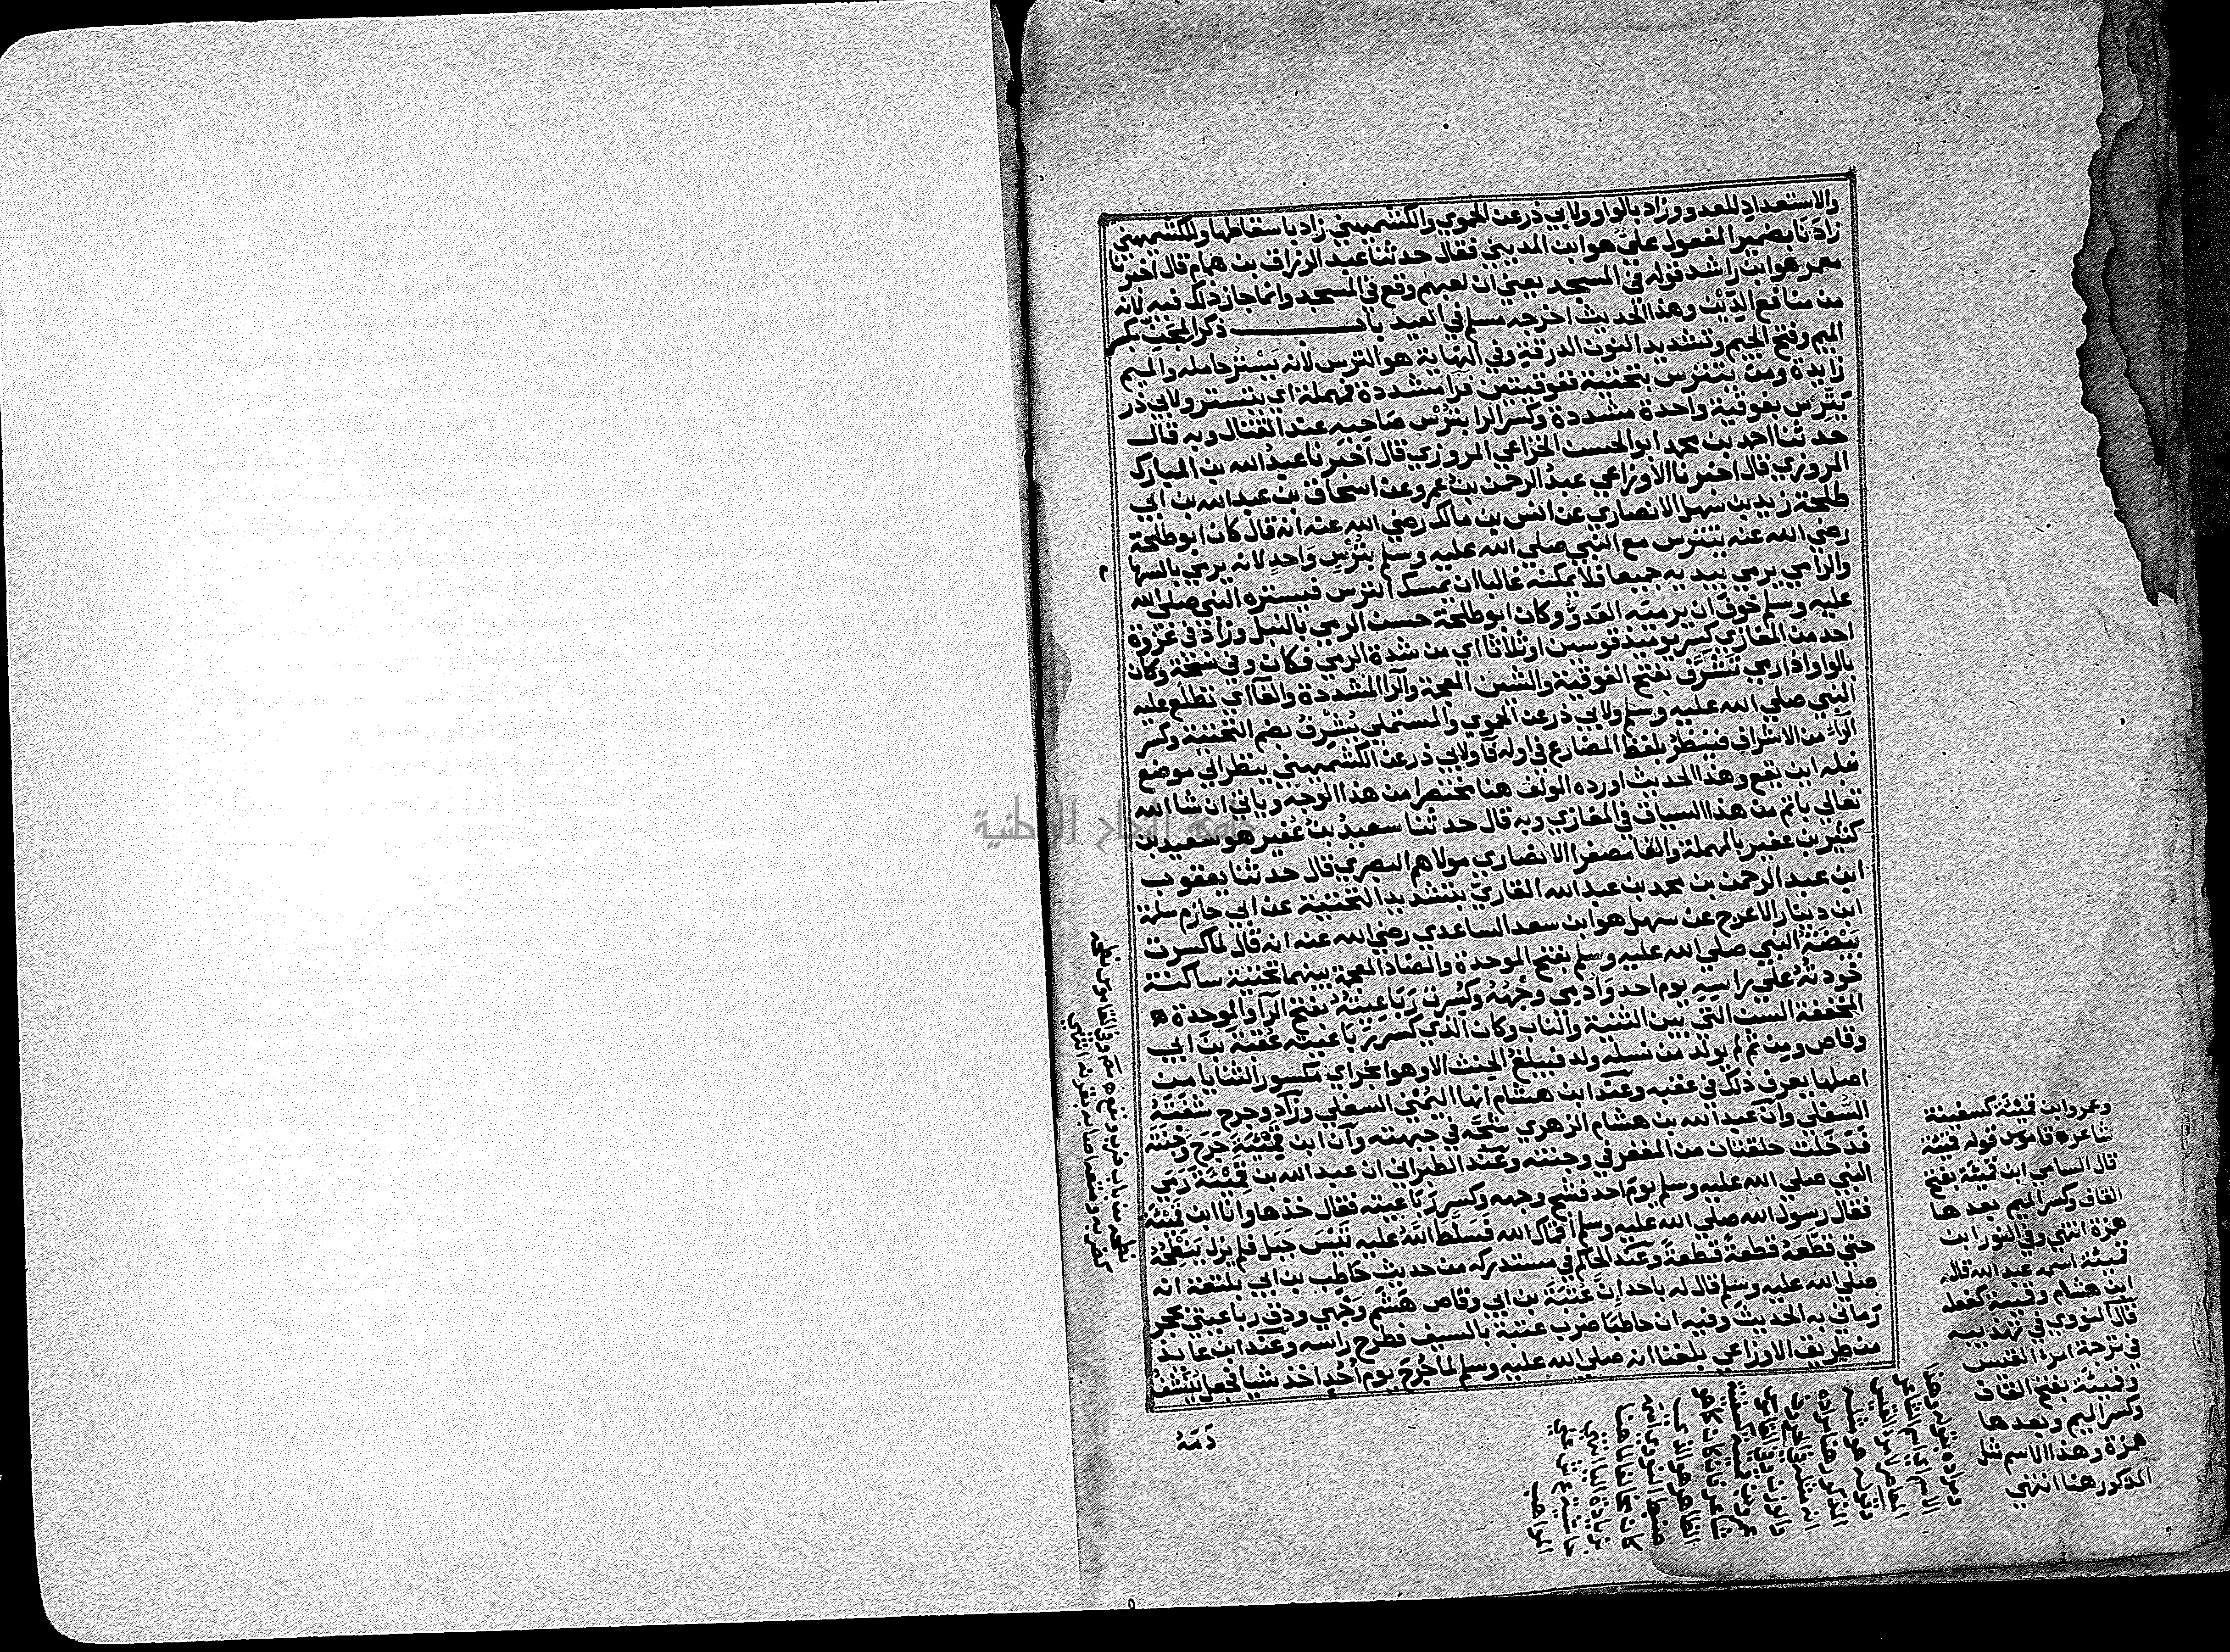 والاستعداد للعدو وزاد بالواو ولابي ذر عن الحموي والكشميهني زاد باسقاطها وللكشميهني
زادَنَا بضمير المفعول عليٌّ هو ابن المديني فقال حدثنا عبد الرزاق بن همام قال اخبرنا
معمر هو ابن راشد قوله في المسجد يعني ان لعبهم وقع في المسجد وانما جاز ذلك فيه لانه
من منافع الدِّيْن وهذا الحديث اخرجه مسلم في العيد باب ذكر المِجَنّ بكسر
الميم وفتح الجيم وتشديد النون الدرقة وفي النهاية هو الترس لانه يَسْتُر حامله والميم
زايدة ومن يتترس بتحتية ففوقيتين فرا مشددة فمهملة اي يتستر ولابي ذر
يَتَّرِس بفوقية واحدة مشددة وكسر الرا بتُرْس صَاحِبِه عند القتال وبه قال
حدثنا احمد بن محمد ابو الحسن الخزاعي المروزي قال اخبرنا عبدُ الله بن المبارك
المروزي قال اخبرنا الأوزاعي عبدُ الرحمن بنُ عمرو عن اسحاق بن عبد الله بن ابي
طلحة زيد بن سهل الانصاري عن انس بن مالك رضي الله عنه انه قال كان ابو طلحة
رضي الله عنه يتترس مع النبي صلي الله عليه وسلم بتُرْسٍ وَاحدٍ لانه يرمي بالسها
والرامي يرمي بيديه جميعا فلا يمكنه غالبا ان يمسك الترس فيستره النبي صلي الله
عليه وسلم خوفَ ان يرميَه العدوُّ وكان ابو طلحة حسن الرمي بالنبل وزاد في غزوة
احد من المغازي كسر يوميذ قوسين او ثلاثا اي من شدة الرمي فكان وفي نسخة وكان
بالواو اذا رمي تَشَرَّفَ بفتح الفوقية والشين المعجمة والرا المشددة والفا اي تطلع عليه
النبي صلي الله عليه وسلم ولابي ذر عن الحموي والمستملي يُشْرِفُ بضم التحتية وكسر
الرّاء من الاشراف فينظرُ بلفظ المضارع في اوله فآ ولابي ذر عن الكشميهني ينظر الي موضع
نبله اين يقع وهذا الحديث اورده المولف هنا مختصرا من هذا الوجه وياتي ان شا الله
تعالي باتم من هذا السياق في المغازي وبه قال حدثنا سعيدُ بنُ عُفير هو سعيد بن
كثير بن عفير بالمهملة والفا مصغرا الانصاري مولاهم البصري قال حدثنا يعقوب
ابن عبد الرحمن بن محمد بن عبد الله القاريّ بتشديد التحتية عن ابي حازم سلمة
ابن دينار الاعرج عن سهل هو ابن سعد الساعدي رضي الله عنه انه قال لما كسرت
بَيْضَةُ النبي صلي الله عليه وسلم بفتح الموحدة والضاد المعجمة بينهما تحتية ساكنة
خوذتهُ علي راسِهِ يوم احد وَادْمِي وَجْهُهُ وكُسِرت رَبَاعِيَتُهُ بفتح الرآ والموحدة
المخففة السن التي بين الثنية والناب وكان الذي كسر رَبَاعيته عُتْبَةَ بن ابي
وقاص ومن ثم لم يولد من نسله ولد فيبلغ الحِنث الا وهو ابخر اي مكسور الثنايا من
اصلها يعرف ذلك في عقبه وعند ابن هشام انها اليُمْنَي السفلي وزاد وجرح شَفَتَهُ
السُّفلي وان عبد الله بن هشام الزهري شَجَّه في جبهته وان ابن قَمِئْيَةَ جَرَح وَجْنَتَه
فَدَخَلت حلقتان من المغفر في وجنته وعند الطبراني ان عبد الله بن قَمِئْيَة رَمَي
النبي صلي الله عليه وسلم يومَ احد فشج وجهه وكسر رَبَاعيته فقال خذها وانا ابن قمِئيَة
فقال رسول الله صلي الله عليه وسلم اقْمَاك الله فَسَلَّطَ اللهُ عليه تَيْسَ جَبَل فلم يزل يَنْطِحُهُ
حتي قطَّعَهُ قطعةً قطعةً وعند الحاكم في مستدركه من حديث حَاطِب بن ابي بلتعة انه
صلي الله عليه وسلم قال له باحد اِنَّ عُتْبَةَ بن ابي وقاص هَشَم وَجْهي ودق رباعيتي بحجر
رَماني به الحديث وفيه ان حاطبا ضرب عتبة بالسيف فطرح راسه وعند ابن عايذ
من طريق الاوزاعي بلغنا انه صلي الله عليه وسلم لما جُرِحَ يومَ اُحُدٍ اخذ شيا فجعل يُنَشِّفُ
دَمَهُ
نطحه من باب ضرب ونفع وفي القاموس نطحه
كضربه ومنعه اصابه بقرنه انتهي
وعمرو ابن قميْئَة كسفينة
شاعر ه قاموس قوله قميْئة
قال السامي ابن قَميْئَة بفتح
القاف وكسر الميم بعدها
همزة انتهي وفي النور ابن
قميئة اسمه عبد الله قاله
ابن هشام وقميئة كفعلة
قال النووي في تهذيبه
في ترجمة امرئ القيس
وقميئة بفتح القاف
وكسر الميم وبعدها
همزة وهذا الاسم مثل
المذكور هنا انتهي
جامعة النجاح الوطنية